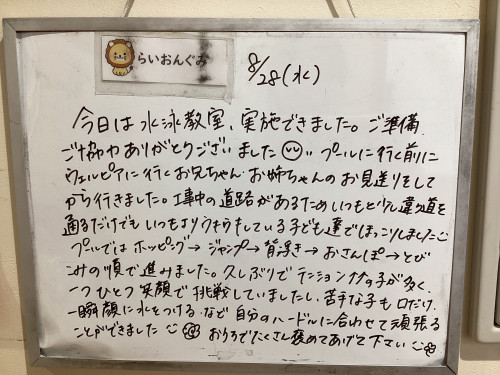 らいおんぐみ
8/28(水)
今日は水泳教室、実施できました。ご準備、
ご協力ありがとうございました
プールに行く前に
ウェルピアに行くお兄ちゃん・お姉ちゃんのお見送りをして
から行きました。工事中の道路があるためいつもと少し違う道を
通るだけでもいつもよりウキウキしている子ども達でほっこりしました
プールではホッピング→ジャンプ→背浮き→おさんぽ→とび
こみの順で進みました。久しぶりでテンション↑↑の子が多く、
一つひとつ笑顔で挑戦していましたし、苦手な子も口だけ、
一瞬顔に水をつける、など自分のハードルに合わせて頑張る
ことができました
おうちでたくさん褒めてあげて下さい